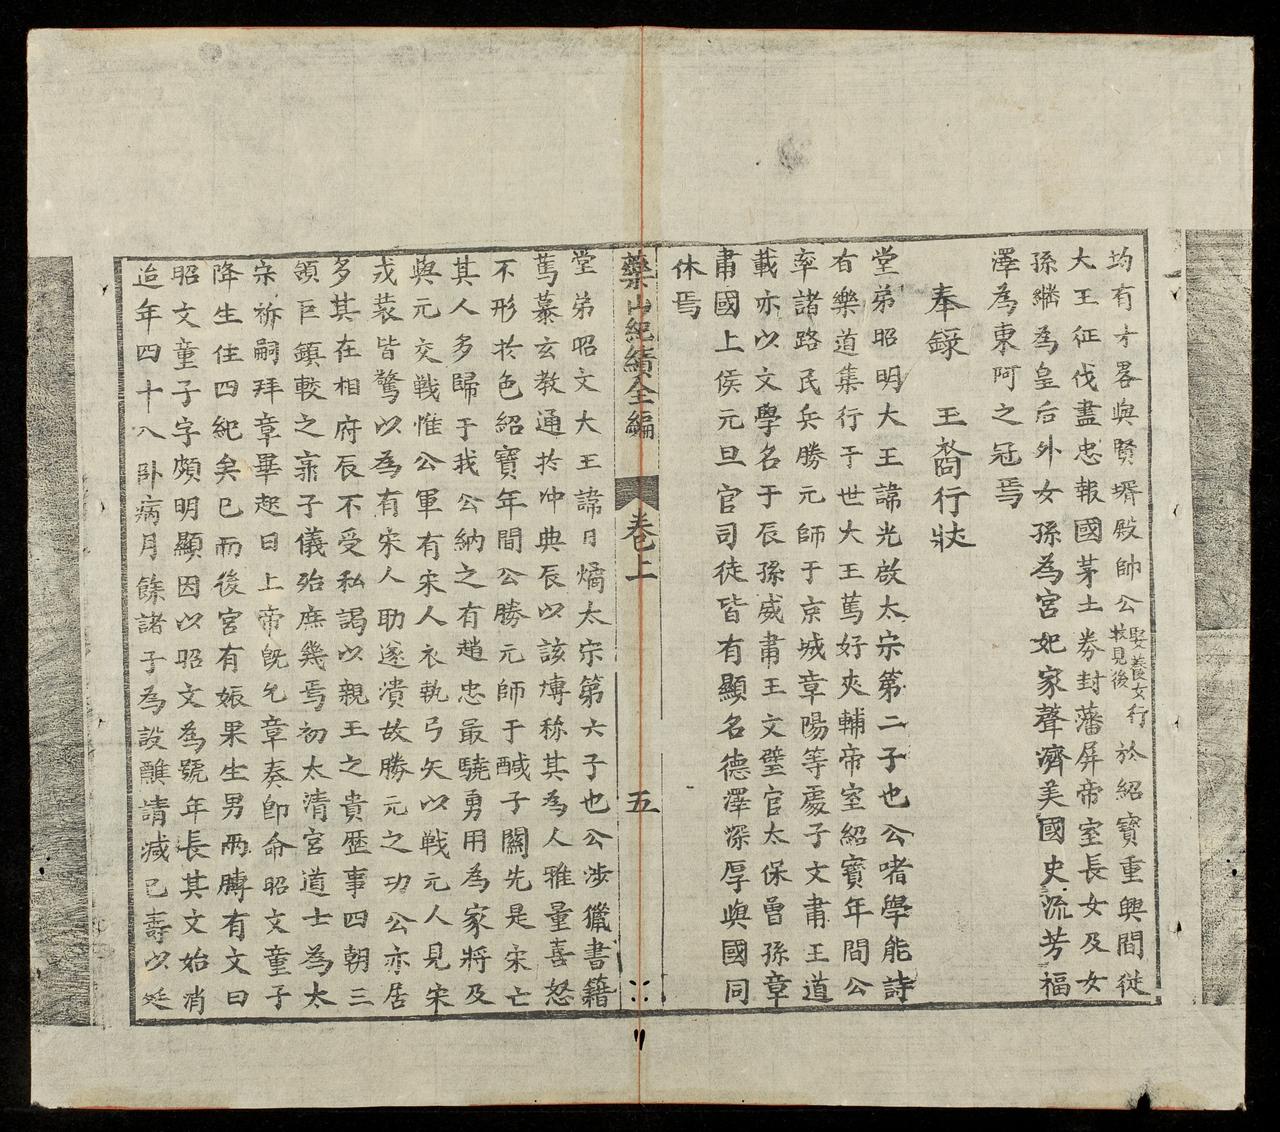 均有才畧與賢壻殿帥公娶養女行狀見後於紹寳重興間從
大王征伐盡忠報國茅土券封藩屏帝室長女及女
孫繼為皇后外女孫為宮妃家聲濟美國史流芳福
澤為東阿之冠焉
奉錄 王裔行狀
堂弟昭明大王諱光啟太宗第二子也公嗜學能詩
有樂道集行于世大王篤好夾輔帝室紹寳年間公
率諸路民兵勝元師于京城章陽等處子文肅王道
載亦以文學名于辰孫威肅王文璧官太保曾孫章
肅國上侯元旦官司徒皆有顯名德澤深厚與國同
休焉
藥山紀績全編 卷上 五
堂弟昭文大王諱日燏太宗第六子也公涉獵書籍
篤慕玄教通於冲典辰以該博称其為人雅量喜怒
不形於色紹寳年間公勝元師于醎子關先是宋亡
其人多歸于我公納之有趙忠最驍勇用為家將及
與元交戦惟公軍有宋人衣執弓矢以戦元人見宋
戎装皆驚以為有宋人助遂潰故勝元之功公亦居
多其在相府辰不受私謁以親王之貴歴事四朝三
領巨鎮較之郭子儀殆庶幾焉初太清宮道士為太
宋祈嗣拜章畢起曰上帝旣允章奏卽命昭文童子
降生住四紀矣已而後宮有娠果生男兩膊有文曰
昭文童子字頗明顯因以昭文為號年長其文始消
迨年四十八卧病月餘諸子為設醮請减已壽以延